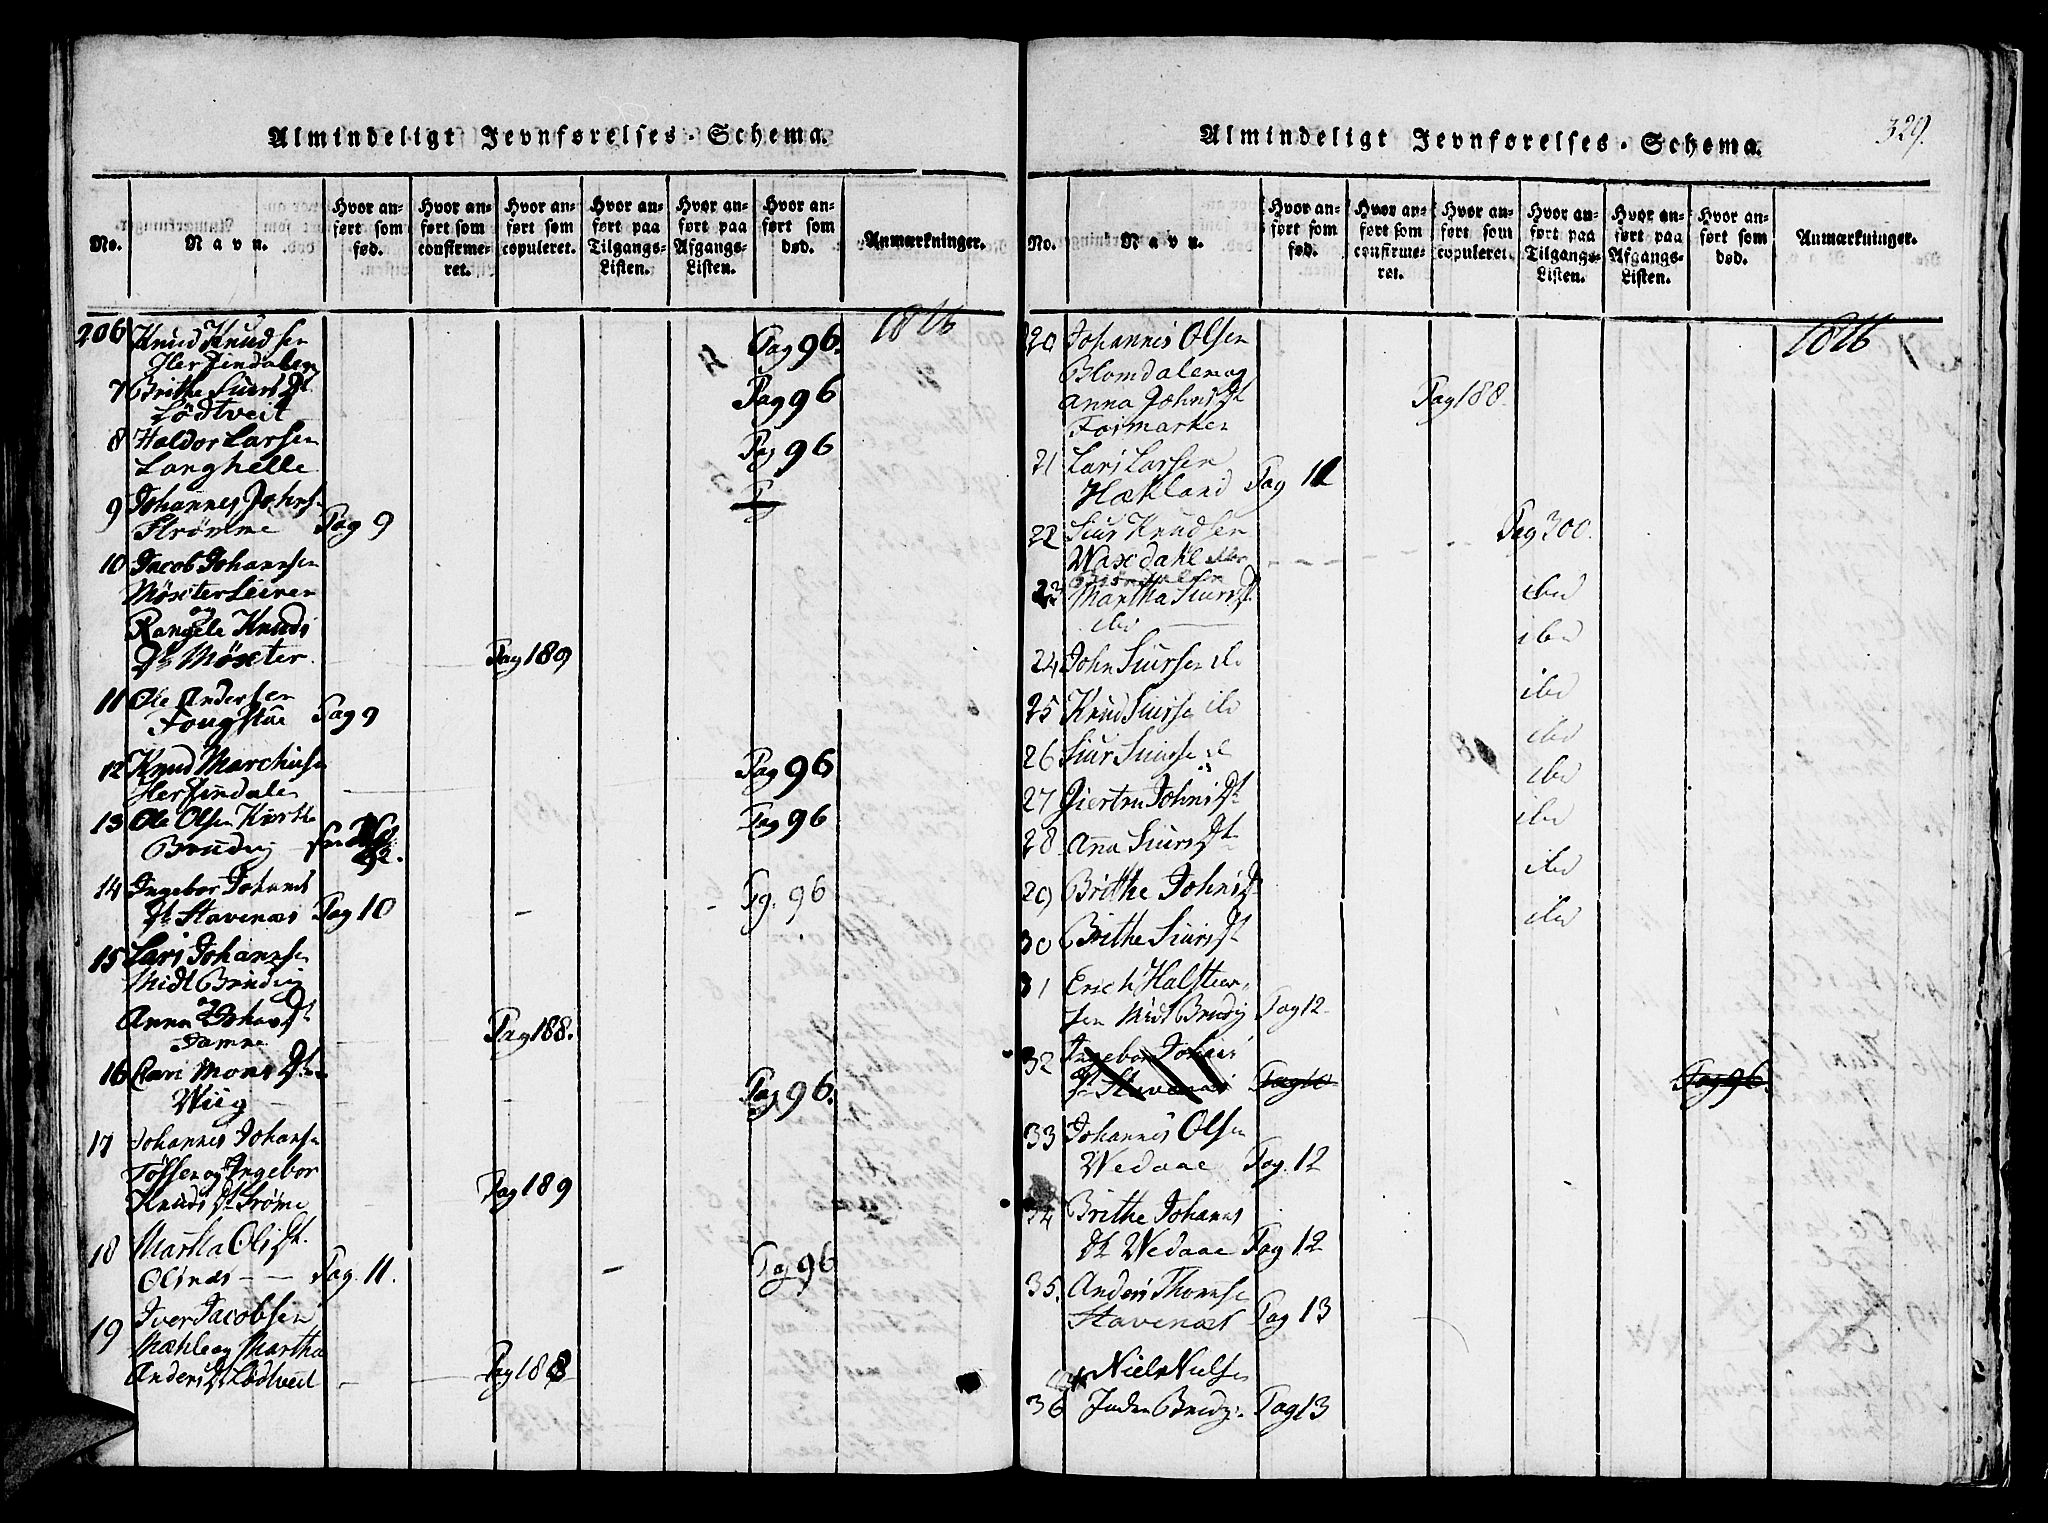 Almindeligt Jevnførelses-Schema.
No.
Navn.
Hvor anført som fød.
Hvor anført som confirmeret.
Hvor anført som copuleret.
Hvor anført paa Tilgangs-Listen.
Hvor anført paa Afgangs-Listen.
Hvor anført som død.
Anmærkninger.
206 Knud Knudsen Pag 96. 1816
Herfindalen
7 Brithe Siurs Dt. Pag 96
Lödtveit
8 Haldor Larsen Pag 96
Langhelle
9 Johannes Johns.
Strömme Pag 9
10 Jacob Johannsen
Möxter Leiren
og
Rangele Knuds
Dt Möxter Pag 189
11 Ole Andersen
Pag 9
12 Knud Marchusen Pag 96
Herfindalen
13 Ole Olsen Pag 96
Brudvig
14 Ingebor Johans
Dt Stavenæs Pag 10 Pg. 96
15 Lars Johannsen
Midt Brudvig
og
Anna Johans Dt
Pag 188.
16 Cari Mons Dt
Wiig Pag 96.
17 Johannes Johansen
Tössen og Ingebor
Knuds Dt Ströme Pag 189
18 Martha Ols Dt.
Olsnæs Pag. 11. Pag 96
19 Iver Jacobsen
Mæhle og Martha
Anders Dt Lödtveit Pag 188
Almindeligt Jevnførelses-Schema.
329.
No.
Navn.
Hvor anført som fød.
Hvor anført som confirmeret.
Hvor anført som copuleret.
Hvor anført paa Tilgangs-Listen.
Hvor anført paa Afgangs-Listen.
Hvor anført som død.
Anmærkninger.
20 Johannes Olsen 1816
Blomdalen og
Anna Johns Dt Pag 188.
Fosmarken
21 Lars Larsen
Hækland Pag 11
22 Siur Knudsen Pag 300.
Waxdahl
23 Martha Siurs Dt ibid
ibid
24 John Siursen ibid
25 Knud Siursen ibid
26 Siur Siursen ibid
27 Giertru Johns Dt ibid
28 Anna Siurs Dt ibid
29 Brithe Johns Dt ibid
30 Brithe Siurs Dt ibid
31 Erich Halsten-
sen Midt Brudvig Pag 12
32 Ingebor Johans
Dt Stavenæs Pag 10 Pag 96.
33 Johannes Olsen
Wedaae Pag. 12
34 Brithe Johannes
Dt Wedaae Pag 12
35. Anders Thomsen
Stavenæs Pag 13
Niels Nielsen
36 Inden Brudvig Pag 13